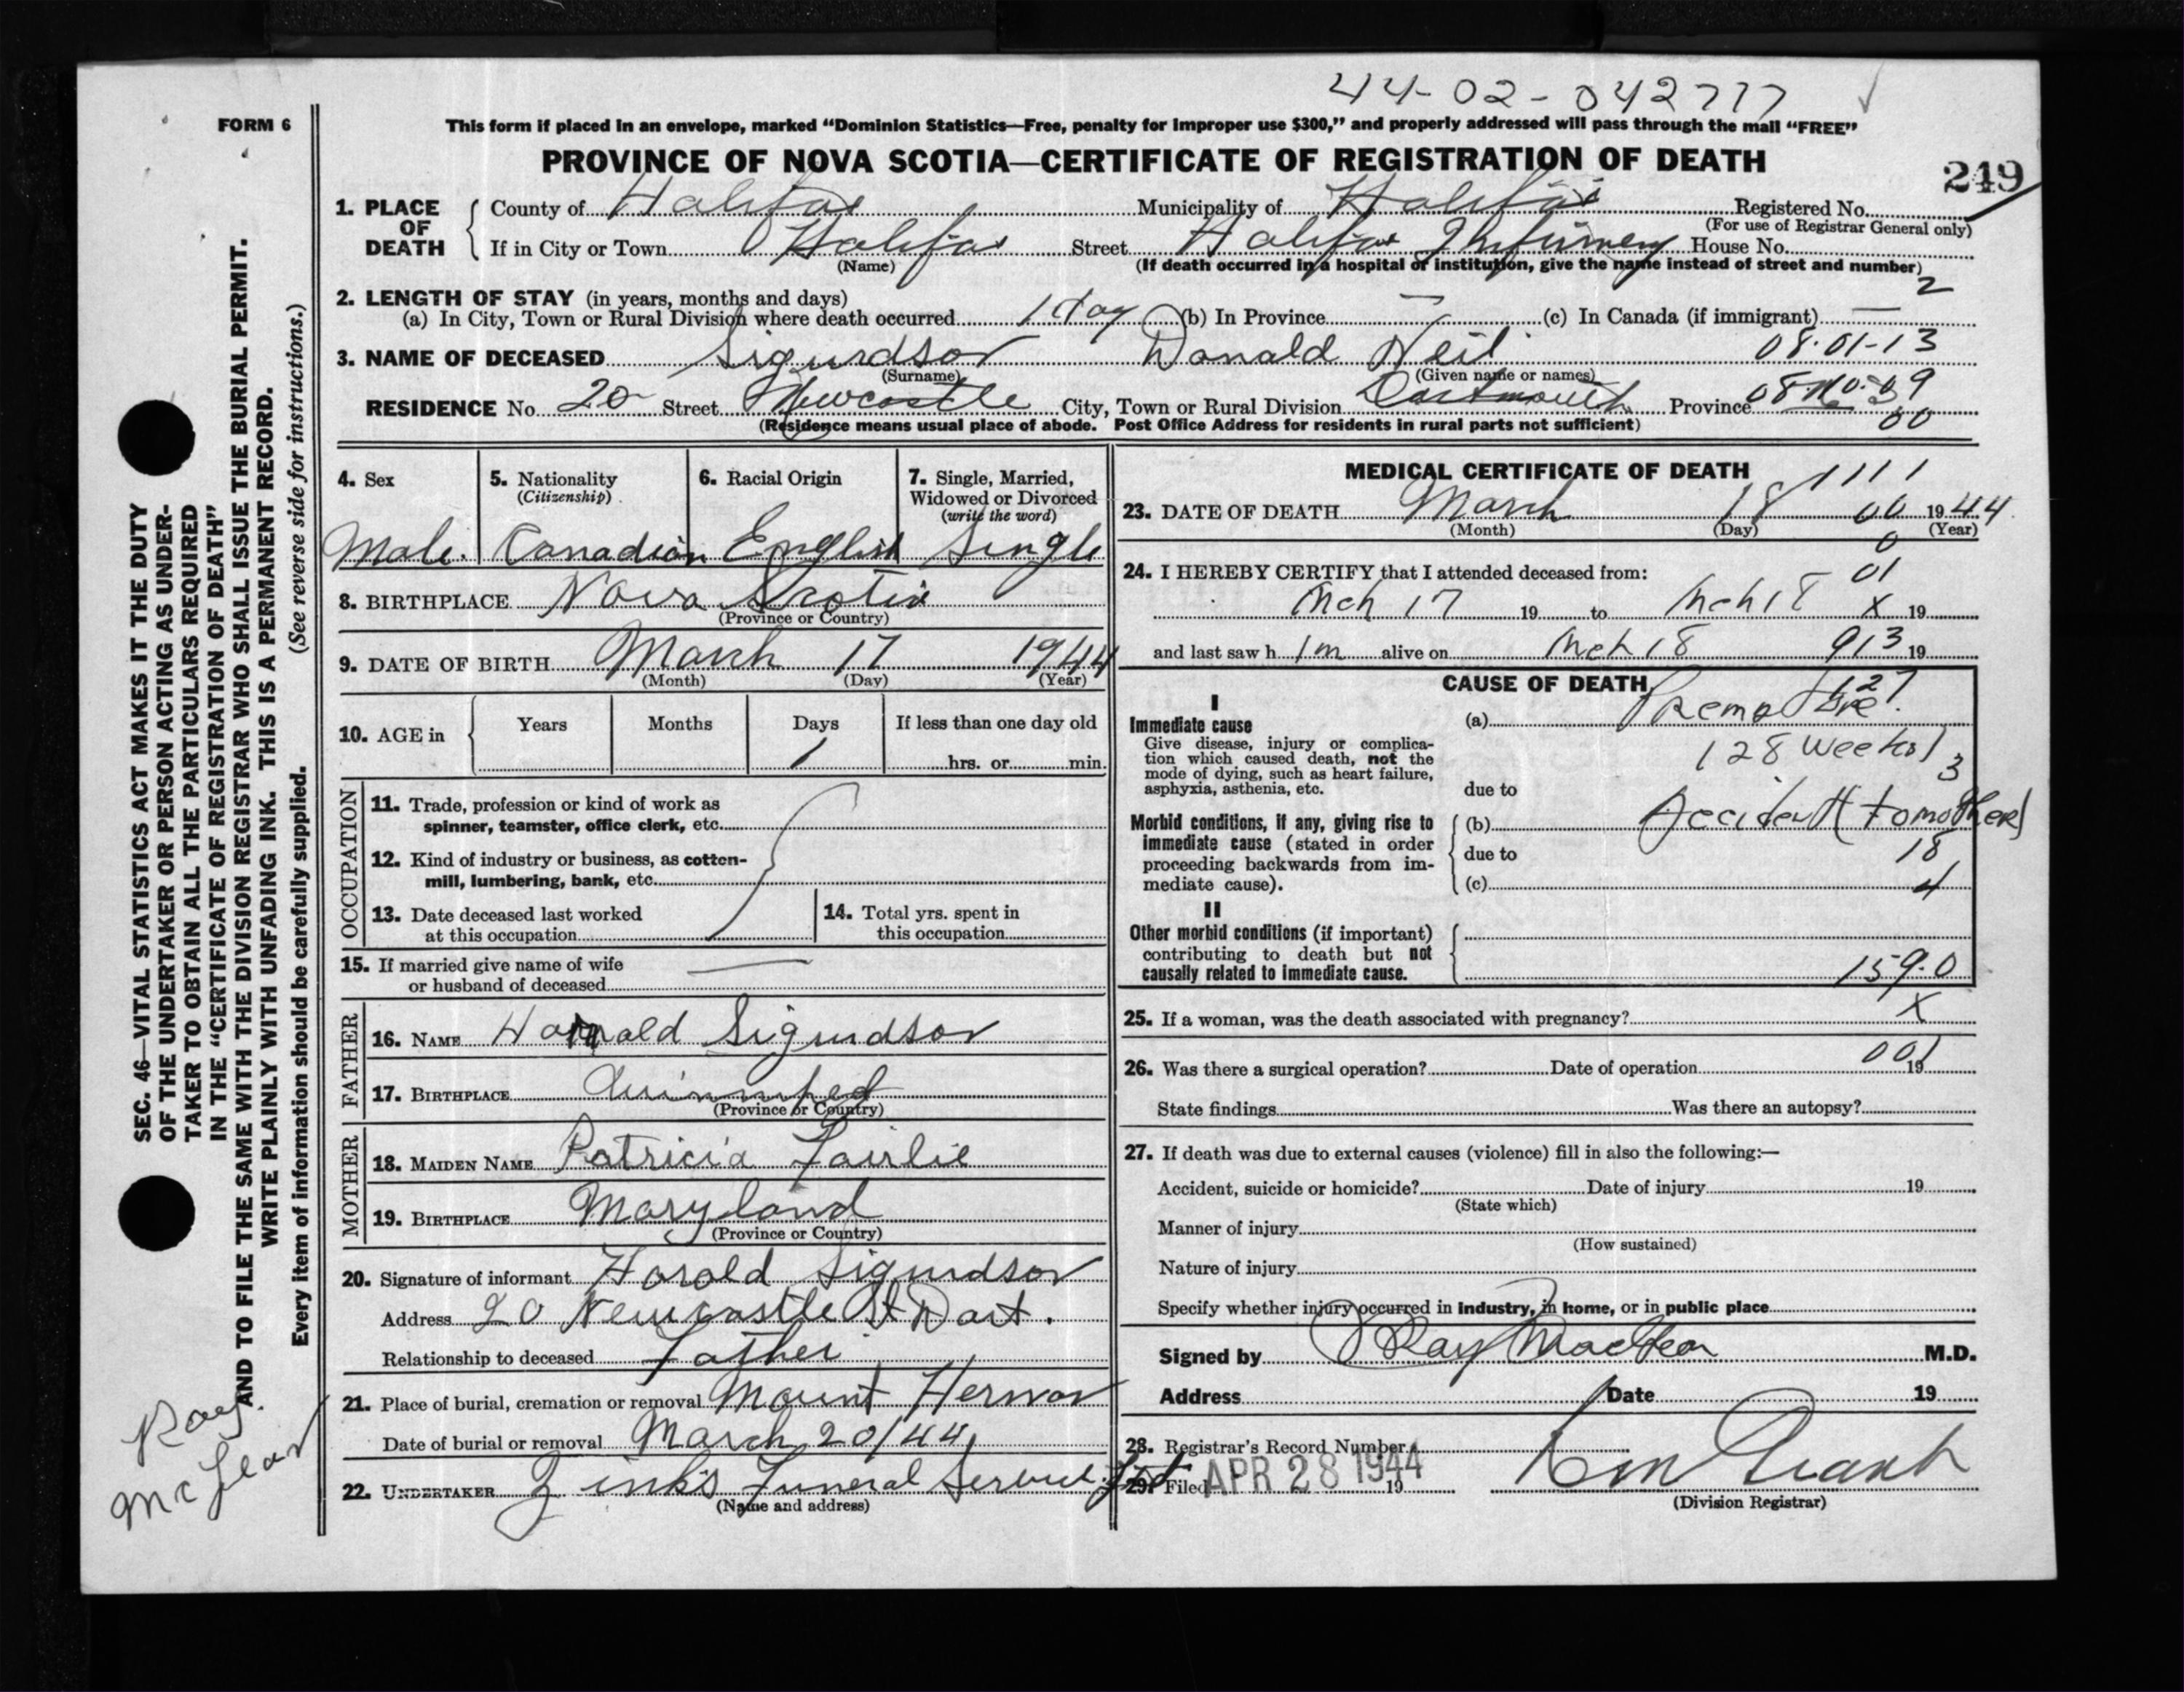 44-02-042777
FORM 6
This form if placed in an envelope, marked “Dominion Statistics—Free, penalty for improper use $300,” and properly addressed will pass through the mail “FREE”
PROVINCE OF NOVA SCOTIA—CERTIFICATE OF REGISTRATION OF DEATH
249
1. PLACE OF DEATH County of Halifax Municipality of Halifax Registered No.
(For use of Registrar General only)
If in City or Town Halifax Street Halifax Infirmery House No.
(Name) (If death occurred in a hospital or institution, give the name instead of street and number)
2
2. LENGTH OF STAY (in years, months and days)
(a) In City, Town or Rural Division where death occurred 1 day (b) In Province — (c) In Canada (if immigrant) —
3. NAME OF DECEASED Sigurdson Donald Neil 08.01-13
(Surname) (Given name or names)
RESIDENCE No. 20 Street Newcastle City, Town or Rural Division Dartmouth Province
00
(Residence means usual place of abode. Post Office Address for residents in rural parts not sufficient)
4. Sex
Male
5. Nationality
(Citizenship)
Canadian
6. Racial Origin
English
7. Single, Married,
Widowed or Divorced
(write the word)
Single
8. BIRTHPLACE Nova Scotia
(Province or Country)
9. DATE OF BIRTH March 17 1944
(Month) (Day) (Year)
10. AGE in Years Months Days If less than one day old
1 hrs. or min.
OCCUPATION
11. Trade, profession or kind of work as
spinner, teamster, office clerk, etc.
12. Kind of industry or business, as cotten-
mill, lumbering, bank, etc.
13. Date deceased last worked
at this occupation
14. Total yrs. spent in
this occupation
15. If married give name of wife
or husband of deceased —
FATHER
16. NAME Harald Sigurdson
17. BIRTHPLACE
(Province or Country)
MOTHER
18. MAIDEN NAME Patricia Fairlie
19. BIRTHPLACE Maryland
(Province or Country)
20. Signature of informant Harold Sigurdson
Address 20 Newcastle St Dart.
Relationship to deceased Father
21. Place of burial, cremation or removal Mount Hermon
Date of burial or removal March 20/44
22. UNDERTAKER Zink's Funeral Service Ltd
(Name and address)
MEDICAL CERTIFICATE OF DEATH
1111
23. DATE OF DEATH March 18 00 1944
(Month) (Day) (Year)
0
24. I HEREBY CERTIFY that I attended deceased from: 01
Mch 17 19 to Mch 18 X 19
and last saw h im alive on Mch 18 913 19
CAUSE OF DEATH
127
I
Immediate cause
Give disease, injury or complica-
tion which caused death, not the
mode of dying, such as heart failure,
asphyxia, asthenia, etc.
(a) Premature.
(28 weeks)
3
due to
Morbid conditions, if any, giving rise to
immediate cause (stated in order
proceeding backwards from im-
mediate cause).
(b) Accident (to mother)
due to 18
(c) 4
II
Other morbid conditions (if important)
contributing to death but not
causally related to immediate cause.
159.0
25. If a woman, was the death associated with pregnancy? X
001
26. Was there a surgical operation? Date of operation 19
State findings Was there an autopsy?
27. If death was due to external causes (violence) fill in also the following:—
Accident, suicide or homicide? Date of injury 19
(State which)
Manner of injury
(How sustained)
Nature of injury
Specify whether injury occurred in industry, in home, or in public place
Signed by Ray MacLean M.D.
Address Date 19
28. Registrar's Record Number
29. Filed APR 28 1944 19
(Division Registrar)
SEC. 46—VITAL STATISTICS ACT MAKES IT THE DUTY
OF THE UNDERTAKER OR PERSON ACTING AS UNDER-
TAKER TO OBTAIN ALL THE PARTICULARS REQUIRED
IN THE “CERTIFICATE OF REGISTRATION OF DEATH”
AND TO FILE THE SAME WITH THE DIVISION REGISTRAR WHO SHALL ISSUE THE BURIAL PERMIT.
WRITE PLAINLY WITH UNFADING INK. THIS IS A PERMANENT RECORD.
Every item of information should be carefully supplied. (See reverse side for instructions.)
Ray
McLean